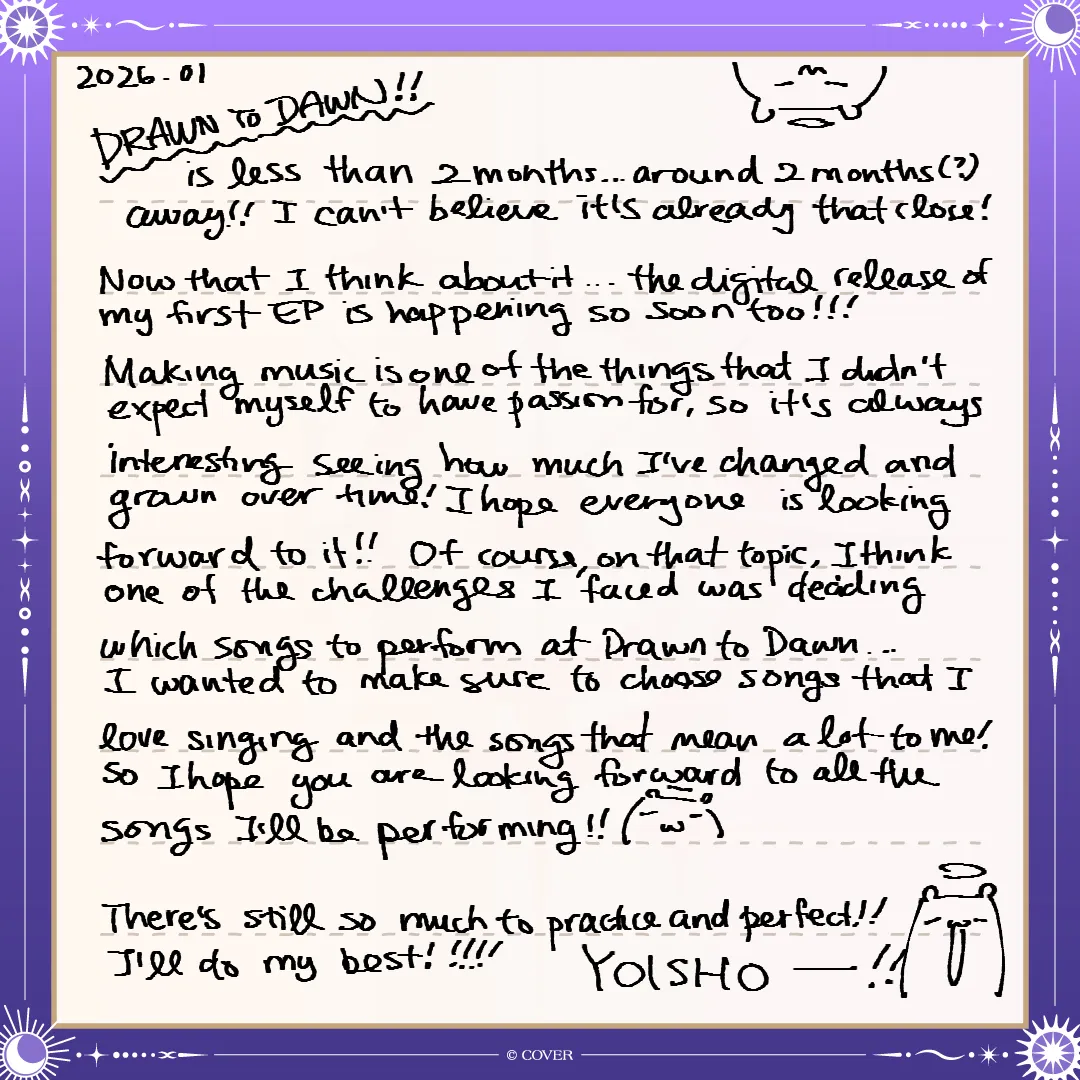 2026-01
DRAWN TO DAWN!!
is less than 2 months... around 2 months(?)
away!! I can't believe it's already that close!
Now that I think about it... the digital release of
my first EP is happening so soon too!!!
Making music is one of the things that I didn't
expect myself to have passion for, so it's always
interesting seeing how much I've changed and
grown over time! I hope everyone is looking
forward to it!! Of course, on that topic, I think
one of the challenges I faced was deciding
which songs to perform at Drawn to Dawn...
I wanted to make sure to choose songs that I
love singing and the songs that mean a lot to me!
So I hope you are looking forward to all the
songs I'll be performing!!
There's still so much to practice and perfect!!
I'll do my best! !!!!
YOISHO —!!
© COVER